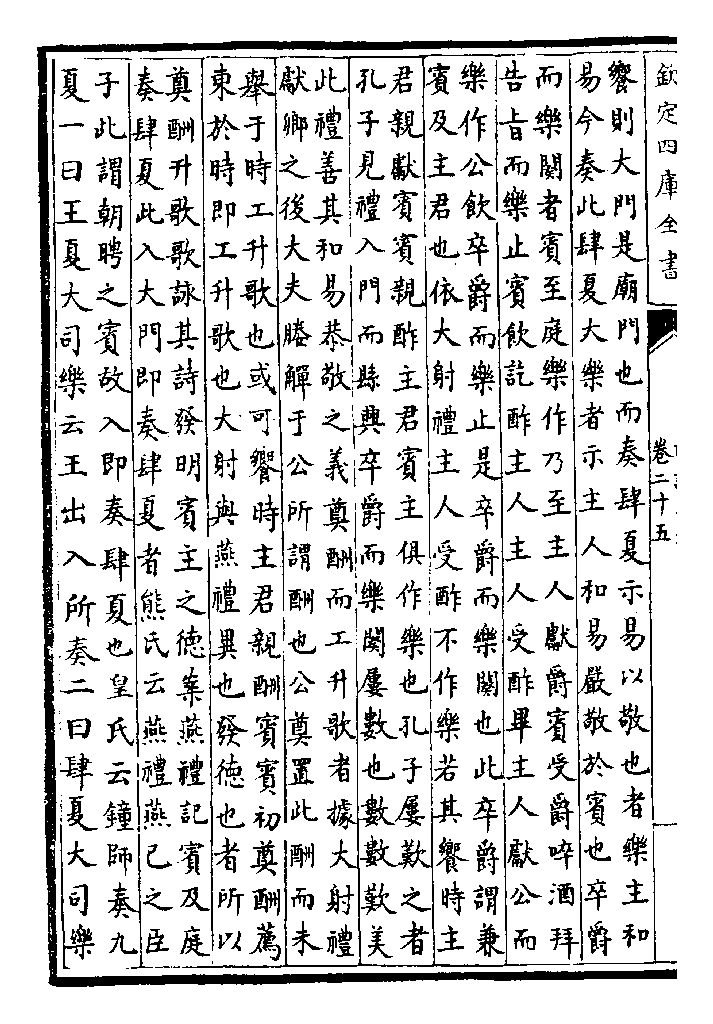 欽定四庫全書
卷二十五
饗則大門是廟門也而奏肆夏示易以敬也者樂主和
易今奏此肆夏大樂者示主人和易嚴敬於賓也卒爵
而樂闋者賓至庭樂作乃至主人獻爵賓受爵啐酒拜
告旨而樂止賓飲訖酢主人主人受酢畢主人獻公而
樂作公飲卒爵而樂止是卒爵而樂闋也此卒爵謂兼
賓及主君也依大射禮主人受酢不作樂若其饗時主
君親獻賓賓親酢主君賓主俱作樂也孔子屢歎之者
孔子見禮入門而縣興卒爵而樂闋屢數也數數歎美
此禮善其和易恭敬之義奠酬而工升歌者據大射禮
獻卿之後大夫媵觶于公所謂酬也公奠置此酬而未
舉于時工升歌也或可饗時主君親酬賓賓初奠酬薦
東於時即工升歌也大射與燕禮異也發德也者所以
奠酬升歌歌詠其詩發明賓主之德案燕禮記賓及庭
奏肆夏此入大門即奏肆夏者熊氏云燕禮燕已之臣
子此謂朝聘之賓故入即奏肆夏也皇氏云鐘師奏九
夏一曰王夏大司樂云王出入所奏二曰肆夏大司樂